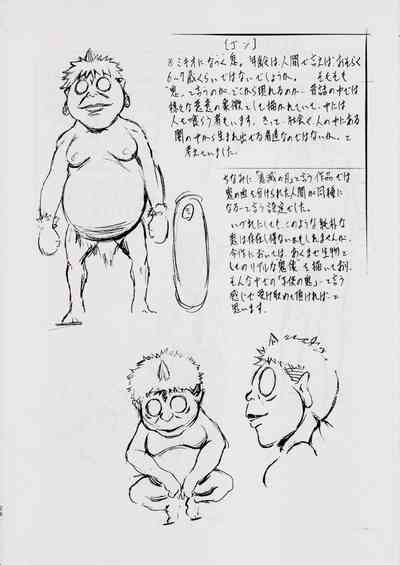 [ゴン]
※ミキオになつく鬼。年齢は人間で言えばおそらく
6〜7歳くらいではないでしょうか。 そもそも
"鬼"って言うのが、どこから現れるのか、昔話の中では
様々な悪意の象徴として描かれていて、中には
人も喰らう者もいます。きっと、社会や、人の中にある
闇の中から生まれ出せる者達なのではないか、と
考えていました。
ちなみに「鬼滅の刃」って言う作品では
鬼の血を分けられた人間が同種に
なるって言う設定でした。
いづれにしても、このような
鬼は存在し得ないかもしれませんが、
今作においては、あくまで生物と
してのリアルな「鬼像」を描いており、
そんな中での「子供の鬼」って言う
感じで受け取めて頂ければと
思います。